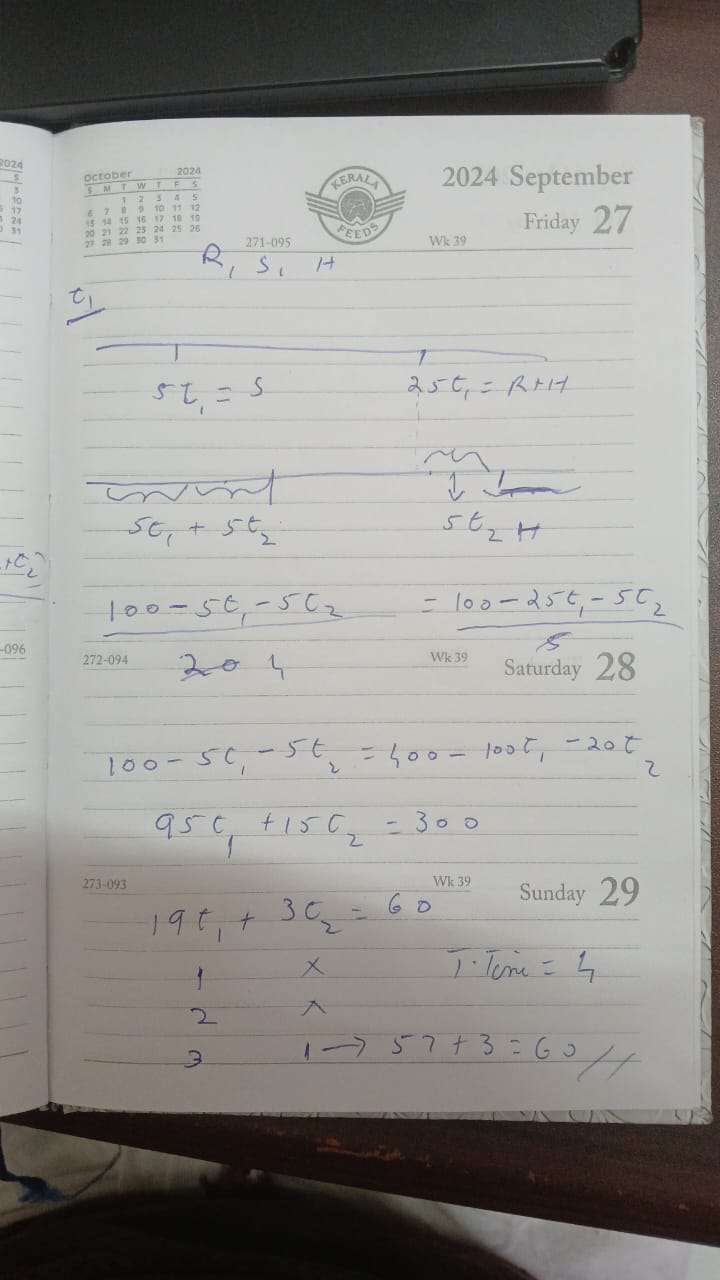 2024
S
3
10
17
24
31
October 2024
S M T W T F S
1 2 3 4 5
6 7 8 9 10 11 12
13 14 15 16 17 18 19
20 21 22 23 24 25 26
27 28 29 30 31
KERALA FEEDS
2024 September
Friday 27
271-095
Wk 39
R, S, H
t₁
5t₁ = S
25t₁ = R+H
5t₁ + 5t₂
5t₂ H
+t₂)
100 - 5t₁ - 5t₂ = 100 - 25t₁ - 5t₂
20 4
5
-096
272-094
Wk 39
Saturday 28
100 - 5t₁ - 5t₂ = 400 - 100t₁ - 20t₂
95t₁ + 15t₂ = 300
273-093
Wk 39
Sunday 29
19t₁ + 3t₂ = 60
1 x T. Time = 4
2 x
3 1 → 57 + 3 = 60 //